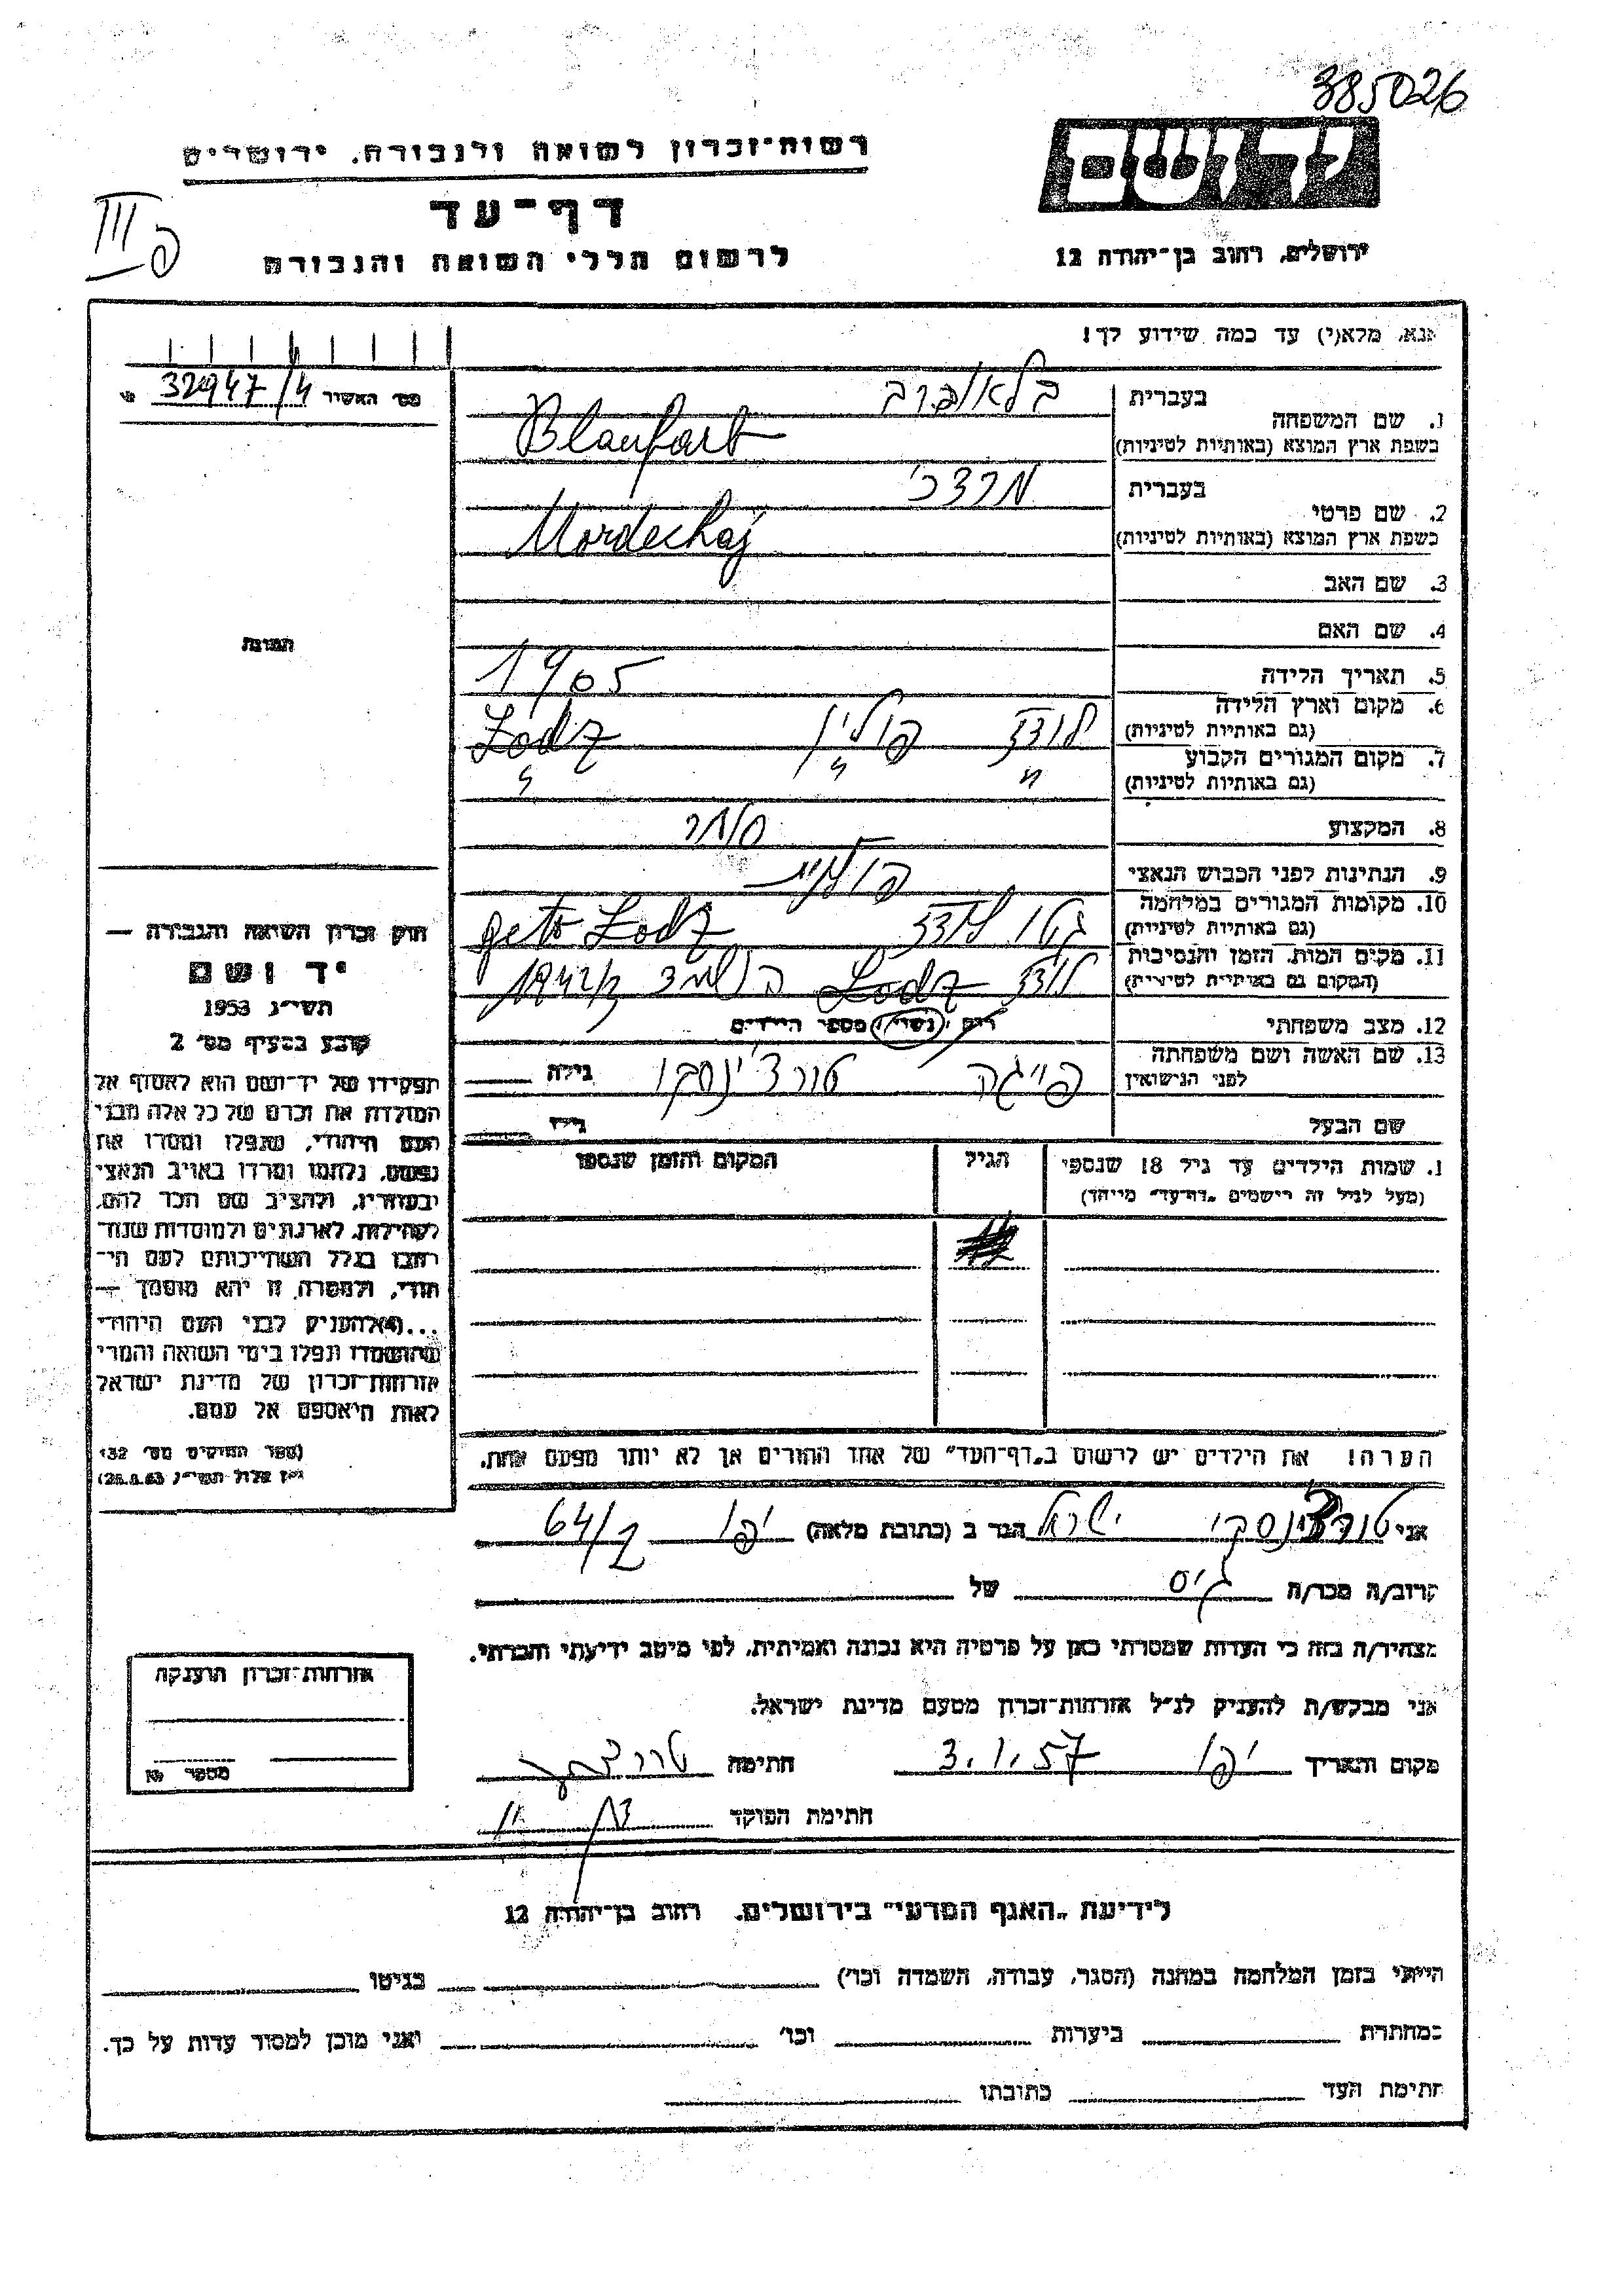 385026
יד ושם
רשות־זכרון לשואה ולגבורה, ירושלים
דף־עד
ירושלים, רחוב בן־יהודה 12
לרשום חללי השואה והגבורה
III
פ
נא, מלא(י) עד כמה שידוע לך!
מס׳ האשיר 32947/4
1. שם המשפחה
בעברית בלאופרב
בשפת ארץ המוצא (באותיות לטיניות) Blaufarb
2. שם פרטי
בעברית מרדכי
בשפת ארץ המוצא (באותיות לטיניות) Mordechaj
3. שם האב
4. שם האם
5. תאריך הלידה 1905
6. מקום וארץ הלידה
(גם באותיות לטיניות) לודז פולין Lodz
7. מקום המגורים הקבוע
(גם באותיות לטיניות) " " "
8. המקצוע סוחר
9. הנתינות לפני הכבוש הנאצי פולנית
10. מקומות המגורים במלחמה
(גם באותיות לטיניות) גטו לודז geto Lodz
11. מקום המות, הזמן והנסיבות
(המקום גם באותיות לטיניות) לודז Lodz 1942
12. מצב משפחתי נשוי/ מספר הילדים
13. שם האשה ושם משפחתה
לפני הנישואין פייגה טורצ'ינסקי גילה
שם הבעל גילו
שמות הילדים עד גיל 18 שנספו הגיל המקום והזמן שנספו
(מעל לגיל זה רישמים „דף־עד" מייחד)
הערה! את הילדים יש לרשום ב„דף־העד" של אחד ההורים אך לא יותר מפעם אחת.
התמונה
חוק זכרון השואה והגבורה —
יד ושם
תשי״ג 1953
קובע בסעיף מס׳ 2
תפקידו של יד־ושם הוא לאסוף אל
המולדת את זכרם של כל אלה מבני
העם היהודי, שנפלו ומסרו את
נפשם, נלחמו ומרדו באויב הנאצי
ובעוזריו, ולהציב שם וזכר להם,
לקהילות, לארגונים ולמוסדות שנח־
רבו בגלל השתייכותם לעם הי־
הודי, ולמטרה זו יהא מוסמך —
...(4) להעניק לבני העם היהודי
שהושמדו ונפלו בימי השואה והמרי
אזרחות־זכרון של מדינת ישראל
לאות היאספם אל עמם.
(ספר החוקים מס׳ 132
אני טורצינסקי ישראל הגר ב (כתובת מלאה) יפו 64/2
קרוב/ה מכר/ה גיס של
מצהיר/ה בזה כי העדות שמסרתי כאן על פרטיה היא נכונה ואמיתית, לפי מיטב ידיעתי והכרתי.
אני מבקש/ת להעניק לנ״ל אזרחות־זכרון מטעם מדינת ישראל.
מקום ותאריך יפו 3.1.57 חתימה
חתימת הפוקד
אזרחות־זכרון הוענקה
מספר
לידיעת „האגף המדעי" בירושלים, רחוב בן־יהודה 12
הייתי בזמן המלחמה במחנה (הסגר, עבודה, השמדה וכו׳) בגיטו
במחתרת ביערות וכו׳ ואני מוכן למסור עדות על כך.
חתימת העד כתובתו